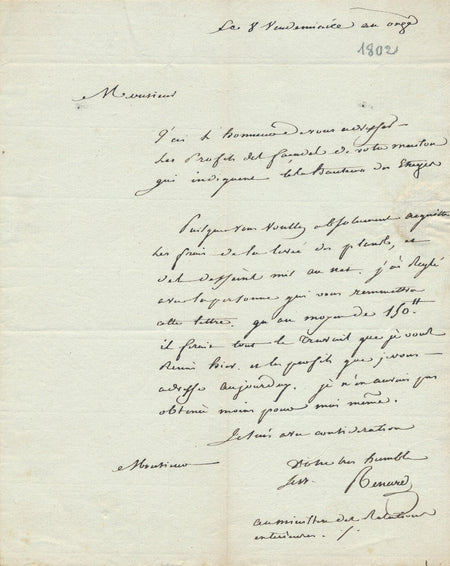 Le 8 Vendemiaire an onze
1802
Monsieur
J'ai l'honneur de vous adresser
Les Profils des facades de votre maison
qui indiquent la hauteur des Etages
Puisque vous voullez absolument acquitter
Les frais de la levée des plans, et
des desseins mis au net. j'ai Reglé
avec la personne qui vous remettra
cette lettre. qu'au moyen de 150.tt
il feroit tout le travail que je vous
Remis hier. et les profils que je vous
adresse aujourdhuy. je n'en aurais pas
obtenu moins pour moi même.
Je suis avec consideration
Monsieur
Votre tres humble
serv. Renard
au ministere des Relations
exterieures. /.